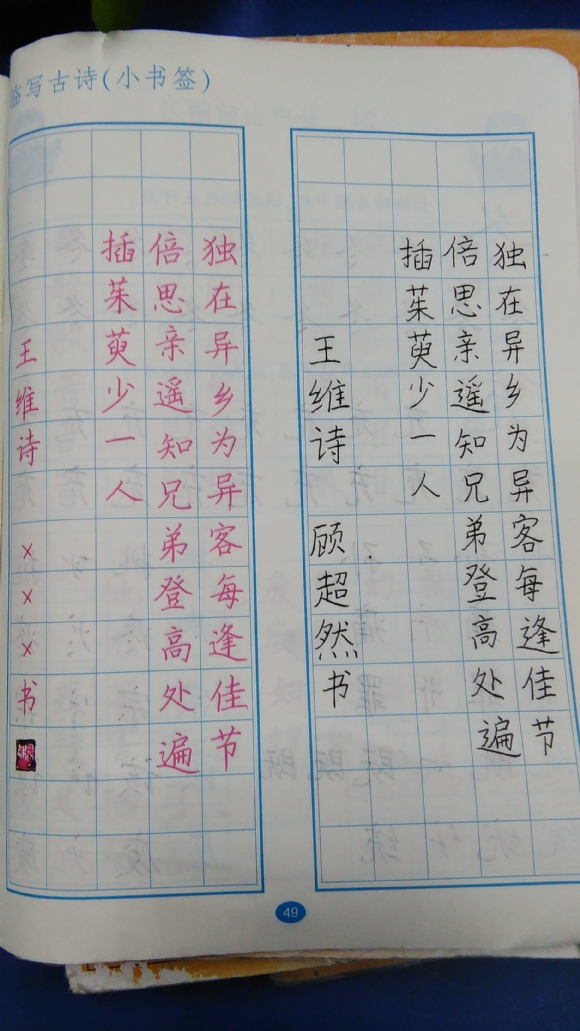 临写古诗(小书签)
独在异乡为异客每逢佳节
倍思亲遥知兄弟登高处遍
插茱萸少一人
王维诗 顾超然书
独在异乡为异客每逢佳节
倍思亲遥知兄弟登高处遍
插茱萸少一人
王维诗 ×××书
49